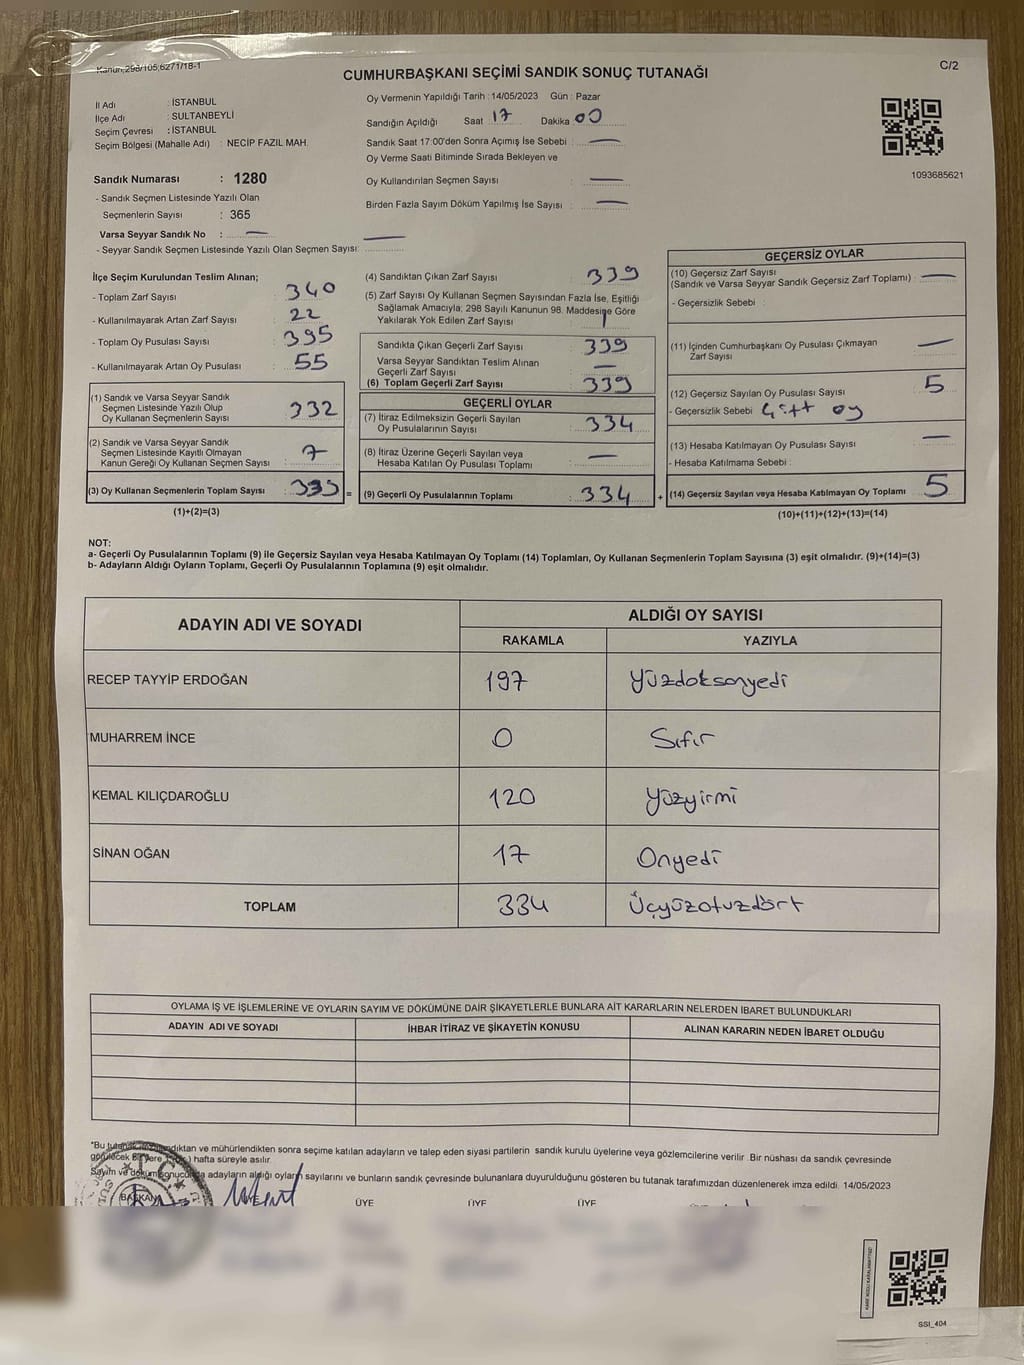 Kanun:298/105;6271/18-1
CUMHURBAŞKANI SEÇİMİ SANDIK SONUÇ TUTANAĞI
C/2
İl Adı : İSTANBUL
İlçe Adı : SULTANBEYLİ
Seçim Çevresi : İSTANBUL
Seçim Bölgesi (Mahalle Adı) : NECİP FAZIL MAH.
Sandık Numarası : 1280
- Sandık Seçmen Listesinde Yazılı Olan
Seçmenlerin Sayısı : 365
Varsa Seyyar Sandık No : —
- Seyyar Sandık Seçmen Listesinde Yazılı Olan Seçmen Sayısı: —
Oy Vermenin Yapıldığı Tarih : 14/05/2023 Gün : Pazar
Sandığın Açıldığı Saat 17 Dakika 00
Sandık Saat 17:00'den Sonra Açımış İse Sebebi : —
Oy Verme Saati Bitiminde Sırada Bekleyen ve
Oy Kullandırılan Seçmen Sayısı : —
Birden Fazla Sayım Döküm Yapılmış İse Sayısı : —
1093685621
İlçe Seçim Kurulundan Teslim Alınan;
- Toplam Zarf Sayısı : 340
- Kullanılmayarak Artan Zarf Sayısı : 22
- Toplam Oy Pusulası Sayısı : 395
- Kullanılmayarak Artan Oy Pusulası : 55
(1) Sandık ve Varsa Seyyar Sandık
Seçmen Listesinde Yazılı Olup
Oy Kullanan Seçmenlerin Sayısı : 332
(2) Sandık ve Varsa Seyyar Sandık
Seçmen Listesinde Kayıtlı Olmayan
Kanun Gereği Oy Kullanan Seçmen Sayısı : 7
(3) Oy Kullanan Seçmenlerin Toplam Sayısı : 339 =
(1)+(2)=(3)
(4) Sandıktan Çıkan Zarf Sayısı : 339
(5) Zarf Sayısı Oy Kullanan Seçmen Sayısından Fazla İse, Eşitliği
Sağlamak Amacıyla, 298 Sayılı Kanunun 98. Maddesine Göre
Yakılarak Yok Edilen Zarf Sayısı :
Sandıkta Çıkan Geçerli Zarf Sayısı : 339
Varsa Seyyar Sandıktan Teslim Alınan
Geçerli Zarf Sayısı : —
(6) Toplam Geçerli Zarf Sayısı : 339
GEÇERLİ OYLAR
(7) İtiraz Edilmeksizin Geçerli Sayılan
Oy Pusulalarının Sayısı : 334
(8) İtiraz Üzerine Geçerli Sayılan veya
Hesaba Katılan Oy Pusulası Toplamı : —
(9) Geçerli Oy Pusulalarının Toplamı : 334 +
GEÇERSİZ OYLAR
(10) Geçersiz Zarf Sayısı
(Sandık ve Varsa Seyyar Sandık Geçersiz Zarf Toplamı) : —
- Geçersizlik Sebebi :
(11) İçinden Cumhurbaşkanı Oy Pusulası Çıkmayan
Zarf Sayısı : —
(12) Geçersiz Sayılan Oy Pusulası Sayısı : 5
- Geçersizlik Sebebi : Çift oy
(13) Hesaba Katılmayan Oy Pusulası Sayısı : —
- Hesaba Katılmama Sebebi :
(14) Geçersiz Sayılan veya Hesaba Katılmayan Oy Toplamı : 5
(10)+(11)+(12)+(13)=(14)
NOT:
a- Geçerli Oy Pusulalarının Toplamı (9) ile Geçersiz Sayılan veya Hesaba Katılmayan Oy Toplamı (14) Toplamları, Oy Kullanan Seçmenlerin Toplam Sayısına (3) eşit olmalıdır. (9)+(14)=(3)
b- Adayların Aldığı Oyların Toplamı, Geçerli Oy Pusulalarının Toplamına (9) eşit olmalıdır.
ADAYIN ADI VE SOYADI ALDIĞI OY SAYISI
RAKAMLA YAZIYLA
RECEP TAYYİP ERDOĞAN 197 Yüzdoksanyedi
MUHARREM İNCE 0 Sıfır
KEMAL KILIÇDAROĞLU 120 Yüzyirmi
SİNAN OĞAN 17 Onyedi
TOPLAM 334 Üçyüzotuzdört
OYLAMA İŞ VE İŞLEMLERİNE VE OYLARIN SAYIM VE DÖKÜMÜNE DAİR ŞİKAYETLERLE BUNLARA AİT KARARLARIN NELERDEN İBARET BULUNDUKLARI
ADAYIN ADI VE SOYADI İHBAR İTİRAZ VE ŞİKAYETİN KONUSU ALINAN KARARIN NEDEN İBARET OLDUĞU
"Bu dıktan ve mühürlendikten sonra seçime katılan adayların ve talep eden siyasi partilerin sandık kurulu üyelerine veya gözlemcilerine verilir .Bir nüshası da sandık çevresinde
görülecek bir yere hafta süreyle asılır.
Sayım ve döküm sonucunda adayların aldığı oyların sayılarını ve bunların sandık çevresinde bulunanlara duyurulduğunu gösteren bu tutanak tarafımızdan düzenlenerek imza edildi. 14/05/2023
BAŞKAN ÜYE ÜYE ÜYE ÜYE
SSI_404